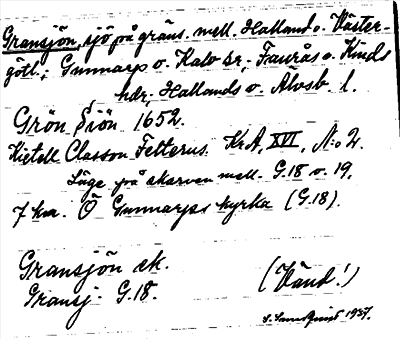 Gransjön, sjö på gräns. mell. Halland o. Väster-
götl.; Gunnarp o. Kalv sr; Faurås o. Kinds
hdr; Hallands o. Älvsb. l.
Grön Siön 1652.
Kietell Classon Fetterus. KrA, XVI, N:o 2.
Läge på skarven mell. G.18 o. 19,
7 km. Ö Gunnarps kyrka (G.18).
Gransjön ek.
Gransj. G.18.
(Vänd!)
S. Lundquist 1937.